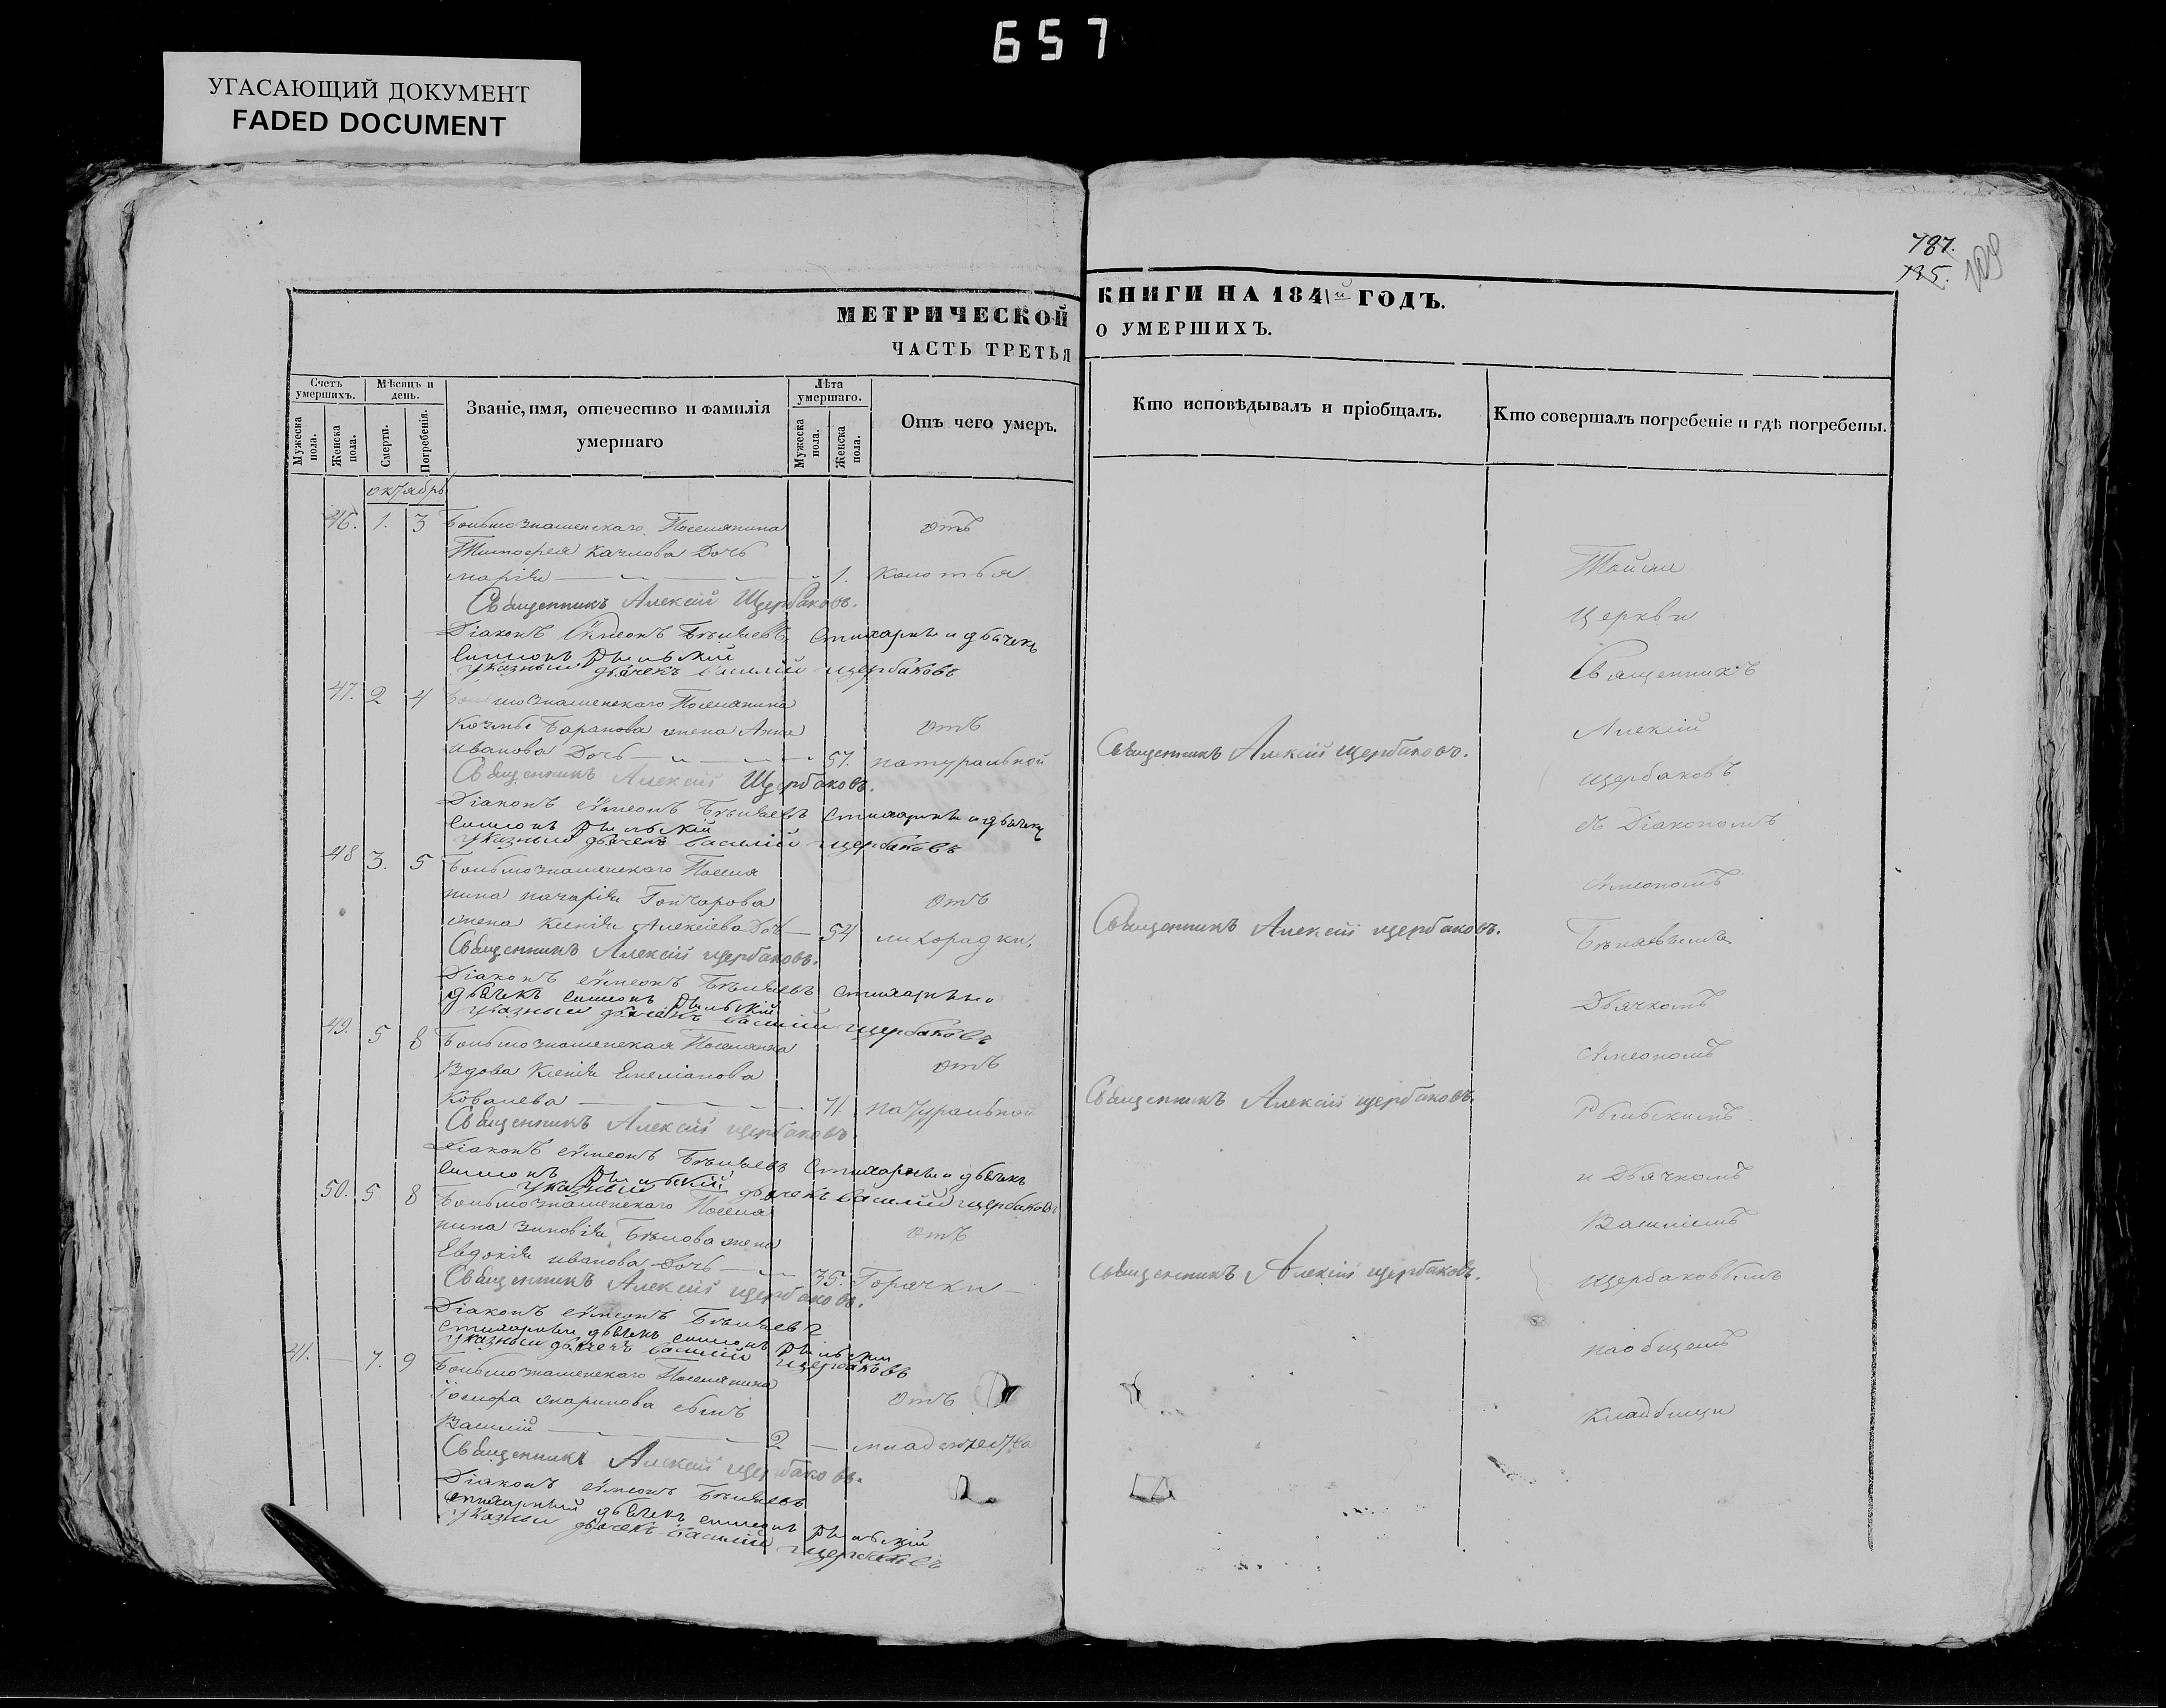 657
УГАСАЮЩИЙ ДОКУМЕНТ
FADED DOCUMENT
787.
125.
109
МЕТРИЧЕСКОЙ КНИГИ НА 1841й ГОДЪ.
ЧАСТЬ ТРЕТЬЯ О УМЕРШИХЪ.
Счетъ умершихъ.
Мужеска пола.
Женска пола.
Мѣсяцъ и день.
Смерти.
Погребенія.
Званіе, имя, отечество и фамилія умершаго
Лѣта умершаго.
Мужеска пола.
Женска пола.
Отъ чего умеръ.
Кто исповѣдывалъ и пріобщалъ.
Кто совершалъ погребеніе и гдѣ погребены.
октябрь
46. 1. 3 Больмознаменскаго Поселянина отъ
Тимофея Качлова Дочь
марія 1. колотья
Священникъ Алексій Щербаковъ.
Діаконъ Сѵмеонъ Бѣляевъ Стихарный дьячекъ
Симеонъ Рыльскій
указный дьячекъ василій щербаковъ
47. 2 4 Больмознаменскаго Поселянина
Баранова жена Анна отъ
иванова Дочь 57. натуральной Священникъ Алексій щербаковъ.
Священникъ Алексій Щербаковъ.
Діаконъ Сѵмеонъ Бѣляевъ Стихарный дьячекъ
Симеонъ Рыльскій
указный дьячекъ василій щербаковъ
48 3. 5 Больмознаменскаго Поселя
нина Гончарова отъ
жена Ксенія Алексіева Дочь 54 лихорадки, Священникъ Алексій щербаковъ.
Священникъ Алексій щербаковъ.
Діаконъ Сѵмеонъ Бѣляевъ Стихарный
дьячекъ Симеонъ Рыльскій
указный дьячекъ василій щербаковъ
49. 5 8 Больмознаменская Поселянка
Вдова Ксенія Емеліанова отъ
Ковалева 71. натуральной Священникъ Алексій щербаковъ.
Священникъ Алексій щербаковъ.
Діаконъ Сѵмеонъ Бѣляевъ Стихарный дьячекъ
Симеонъ Рыльскій
указный дьячекъ василій щербаковъ
50. 5 8 Больмознаменскаго Поселя
нина Зиновія Бѣлова жена отъ
Евдокія иванова Дочь 35. Горячки Священникъ Алексій щербаковъ.
Священникъ Алексій щербаковъ.
Діаконъ Сѵмеонъ Бѣляевъ
Стихарный дьячекъ Симеонъ Рыльскій
указный дьячекъ василій щербаковъ
41. 7. 9 Больмознаменскаго Поселянина
сынъ отъ
Василій 2 младенчества
Священникъ Алексій щербаковъ.
Діаконъ Сѵмеонъ Бѣляевъ
стихарный дьячекъ Симеонъ Рыльскій
указный дьячекъ василій щербаковъ
Тойже
Церкви
Священникъ
Алексій
щербаковъ
съ Діакономъ
Сѵмеономъ
Бѣляевымъ
Дьячкомъ
Сѵмеономъ
Рыльскимъ.
и Дьячкомъ
Василіемъ
щербаковымъ
наобщемъ
кладбищи